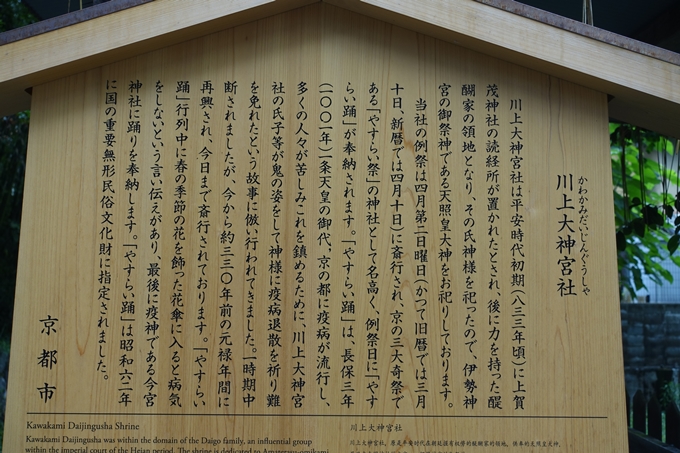 かわかみだいじんぐうしゃ
川上大神宮社
川上大神宮社は平安時代初期(八三三年頃)に上賀
茂神社の読経所が置かれたとされ、後に力を持った醍
醐家の領地となり、その氏神様を祀ったので、伊勢神
宮の御祭神である天照皇大神をお祀りしております。
当社の例祭は四月第二日曜日(かつて旧暦では三月
十日、新暦では四月十日)に斎行され、京の三大奇祭で
ある「やすらい祭」の神社として名高く、例祭日に「やす
らい踊」が奉納されます。「やすらい踊」は、長保三年
(一〇〇一年)一条天皇の御代、京の都に疫病が流行し、
多くの人々が苦しみこれを鎮めるために、川上大神宮
社の氏子等が鬼の姿をして神様に疫病退散を祈り難
を免れたという故事に倣い行われてきました。一時期中
断されましたが、今から約三三〇年前の元禄年間に
再興され、今日まで斎行されております。「やすらい
踊」行列中に春の季節の花を飾った花傘に入ると病気
をしないという言い伝えがあり、最後に疫神である今宮
神社に踊りを奉納します。「やすらい踊」は昭和六二年
に国の重要無形民俗文化財に指定されました。
京都市
Kawakami Daijingusha Shrine
Kawakami Daijingusha was within the domain of the Daigo family, an influential group
within the imperial court of the Heian period. The shrine is dedicated to Amaterasu-omikami
川上大神宮社